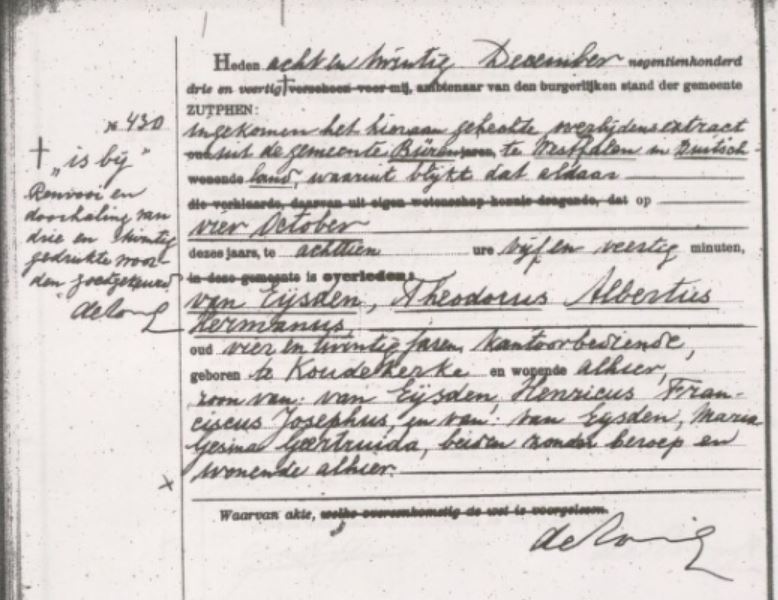 Heden acht en twintig December negentienhonderd
drie en veertig † verscheen voor mij, ambtenaar van den burgerlijken stand der gemeente
ZUTPHEN:
ingekomen het hieraan gehechte overlijdensextract
oud uit de gemeente Büren jaren, te Westfalen in Duitsch-
wonende land, waaruit blijkt dat aldaar
die verklaarde, daarvan uit eigen wetenschap kennis dragende, dat op
vier October
dezes jaars, te achttien ure vijf en veertig minuten,
in deze gemeente is overleden:
van Eijsden, Theodorus Albertus
Hermanus,
oud vier en twintig jaren, kantoorbediende,
geboren te Koudekerke en wonende alhier,
zoon van: van Eijsden, Henricus Fran-
ciscus Josephus, en van: van Eijsden, Maria
Gesina Geertruida, beiden zonder beroep en
wonende alhier.
Waarvan akte, welke overeenkomstig de wet is voorgelezen.
№ 430
† "is bij"
Renvooi en
doorhaling van
drie en twintig
gedrukte woor-
den goedgekeurd